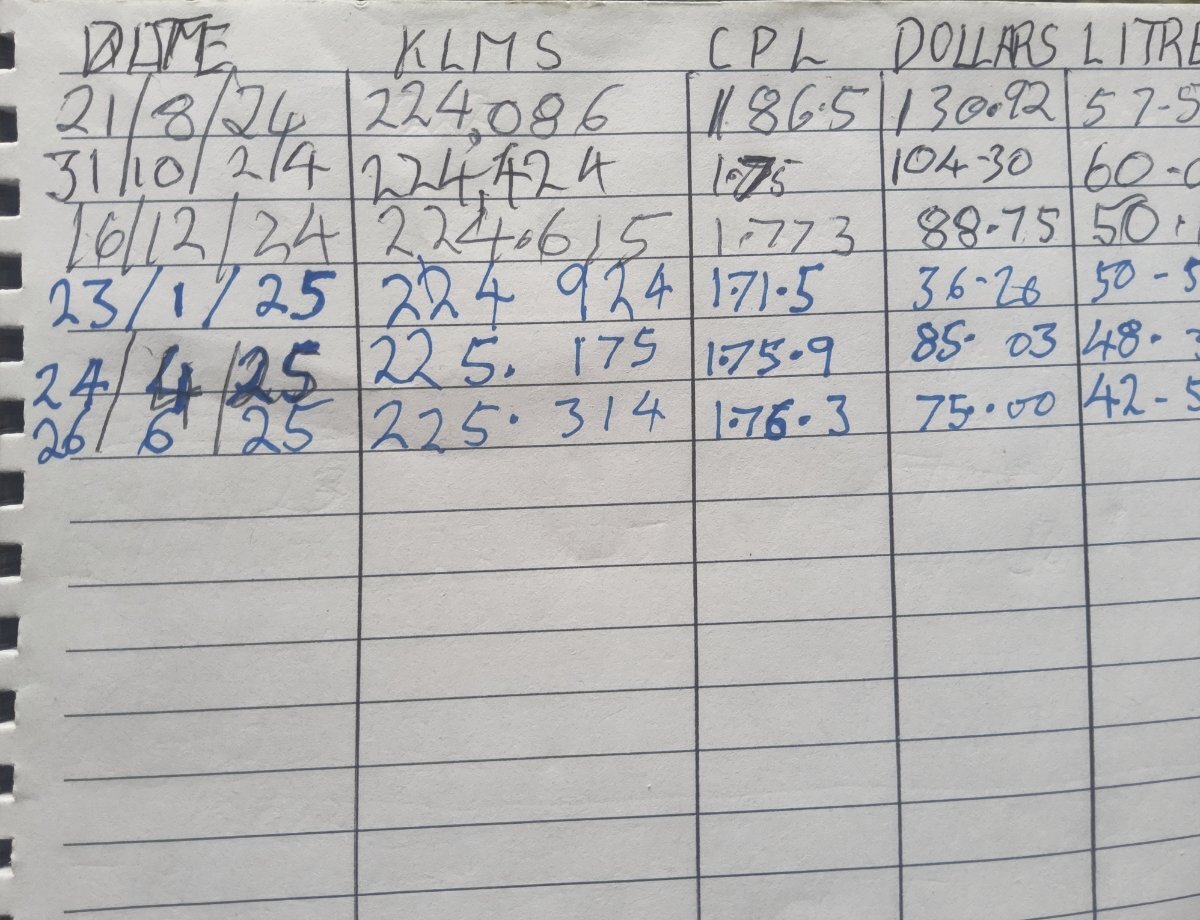 DATE KLMS CPL DOLLARS LITRE
21/8/24 224,086 186.5 130.92 57-5
31/10/24 224,424 1.75 104-30 60-0
16/12/24 224.615 1.773 88.75 50.
23/1/25 224 924 1.71.5 36-26 50-5
24/4/25 225. 175 1.75.9 85. 03 48.3
26/6/25 225. 314 1.76.3 75.00 42-5